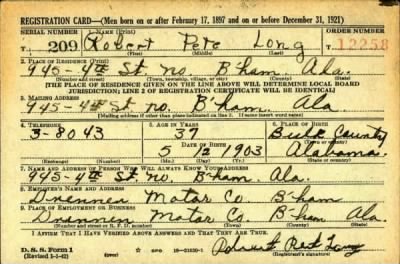 REGISTRATION CARD—(Men born on or after February 17, 1897 and on or before December 31, 1921)
SERIAL NUMBER 1. NAME (Print) ORDER NUMBER
T 209 Robert Pete Long 12258
(First) (Middle) (Last)
2. PLACE OF RESIDENCE (Print)
945-4th St no. B'ham, Ala.
(Number and street) (Town, township, village, or city) (County) (State)
[THE PLACE OF RESIDENCE GIVEN ON THE LINE ABOVE WILL DETERMINE LOCAL BOARD
JURISDICTION; LINE 2 OF REGISTRATION CERTIFICATE WILL BE IDENTICAL]
3. MAILING ADDRESS
945-4th St no. B'ham Ala
[Mailing address if other than place indicated on line 2. If same insert word same]
4. TELEPHONE 5. AGE IN YEARS 6. PLACE OF BIRTH
3-8043 37 County
DATE OF BIRTH (Town or county)
5 12 1903 Alabama
(Exchange) (Number) (Mo.) (Day) (Yr.) (State or country)
7. NAME AND ADDRESS OF PERSON WHO WILL ALWAYS KNOW YOUR ADDRESS
945-4th St. no B'ham Ala.
8. EMPLOYER'S NAME AND ADDRESS
Drennen Motor Co B'ham
9. PLACE OF EMPLOYMENT OR BUSINESS
Drennen Motor Co. B'ham Ala.
(Number and street or R. F. D. number) (Town) (County) (State)
I AFFIRM THAT I HAVE VERIFIED ABOVE ANSWERS AND THAT THEY ARE TRUE.
D. S. S. Form 1
(Revised 1-1-42) GPO 16—21630-1 Robert Long
(Registrant's signature)